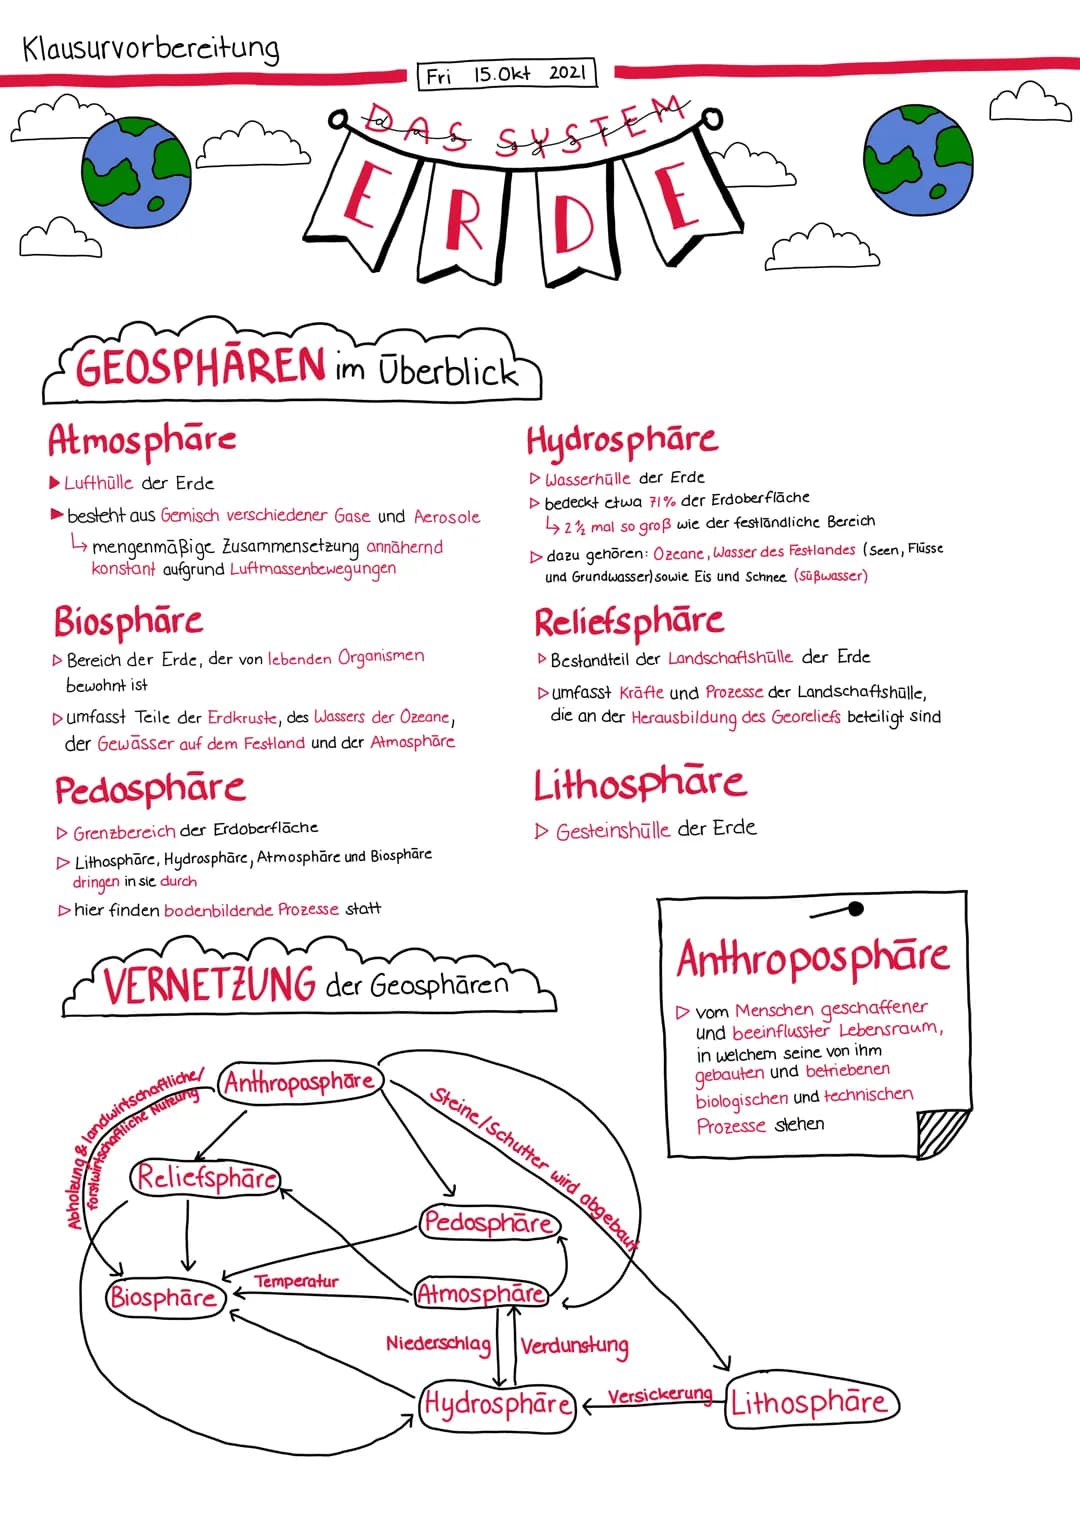 Klausurvorbereitung
Fri 15.Okt 2021
DAS SYSTEM
ERDE
GEOSPHÄREN im Überblick
Atmosphäre
▶ Lufthülle der Erde
▶ besteht aus Gemisch verschiedener Gase und Aerosole
↳ mengenmäßige Zusammensetzung annähernd
konstant aufgrund Luftmassenbewegungen
Biosphäre
▷ Bereich der Erde, der von lebenden Organismen
bewohnt ist
▷ umfasst Teile der Erdkruste, des Wassers der Ozeane,
der Gewässer auf dem Festland und der Atmosphäre
Pedosphäre
▷ Grenzbereich der Erdoberfläche
▷ Lithosphäre, Hydrosphäre, Atmosphäre und Biosphäre
dringen in sie durch
▷ hier finden bodenbildende Prozesse statt
Hydrosphäre
▷ Wasserhülle der Erde
▷ bedeckt etwa 71% der Erdoberfläche
↳ 2½ mal so groß wie der festländliche Bereich
▷ dazu gehören: Ozeane, Wasser des Festlandes (Seen, Flüsse
und Grundwasser) sowie Eis und Schnee (Süßwasser)
Reliefsphäre
▷ Bestandteil der Landschaftshülle der Erde
▷ umfasst Kräfte und Prozesse der Landschaftshülle,
die an der Herausbildung des Georeliefs beteiligt sind
Lithosphäre
▷ Gesteinshülle der Erde
Anthroposphäre
▷ vom Menschen geschaffener
und beeinflusster Lebensraum,
in welchem seine von ihm
gebauten und betriebenen
biologischen und technischen
Prozesse stehen
VERNETZUNG der Geosphären
Abholzung & landwirtschaftliche/
forstwirtschaftliche Nutzung
Anthroposphäre
Steine/Schutter wird abgebaut
Reliefsphäre
Pedosphäre
Biosphäre
Temperatur
Atmosphäre
Niederschlag
Verdunstung
Hydrosphäre
Versickerung
Lithosphäre